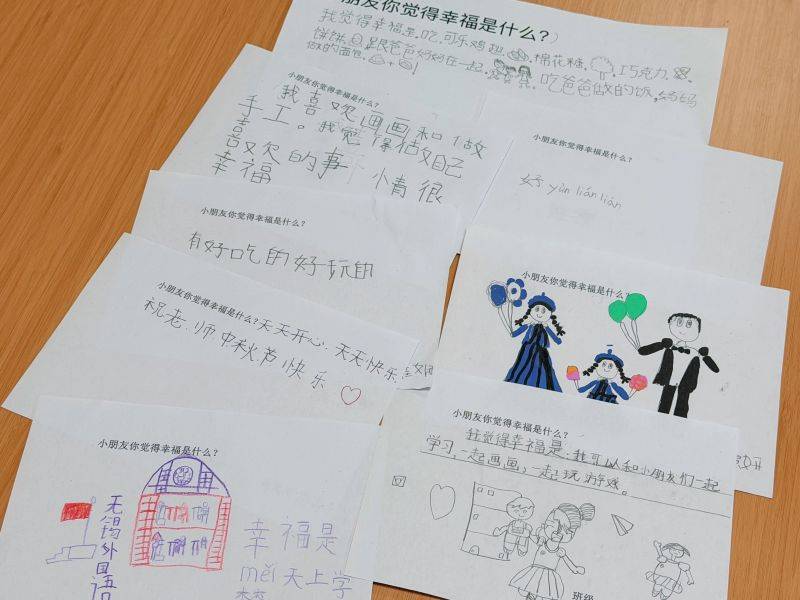 朋友你觉得幸福是什么?)
我觉得幸福是,吃,可乐鸡翅,棉花糖,巧克力,
饼饼,跟爸爸妈妈在一起,吃爸爸做的饭,妈妈
做的面包,
小朋友你觉得幸福是什么?
我喜欢画画和做
手工。我觉得做自己
喜欢的事
小情很
幸福
小朋友你觉得幸福是什么?
好 yùn lián lián
小朋友你觉得幸福是什么?
有好吃的好玩的
小朋友你觉得幸福是什么?
小朋友你觉得幸福是什么?
天天开心,天天快乐,
祝老师中秋节快乐
小朋友你觉得幸福是什么?
我觉得幸福是:我可以和小朋友们一起
学习,一起画画,一起玩游戏。
班级
小朋友你觉得幸福是什么?
无锡外国语
幸福是
měi天上学